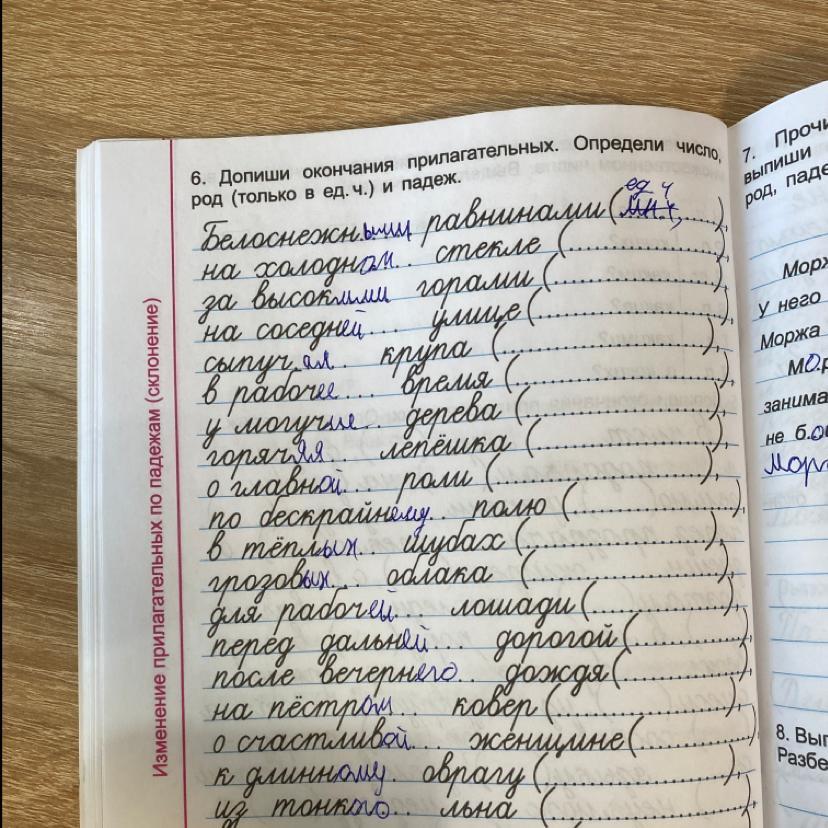 6. Допиши окончания прилагательных. Определи число,
род (только в ед. ч.) и падеж.
ед ч
Белоснежными равнинами (мн.ч, ........),
на холодном.. стекле (....................),
за высокими горами (....................),
на соседней... улице (....................),
сыпучая. крупа (....................),
в рабочее... время (....................),
у могучие.. дерева (....................),
горячяя.. лепёшка (....................),
о главной... роли (....................),
по бескрайнему.. полю (....................),
в тёплых.. шубах (....................),
грозовых... облака (....................),
для рабочей... лошади (....................),
перед дальней... дорогой (....................),
после вечернего.. дождя (....................),
на пёстром ковер (....................),
о счастливой... женщине (....................),
к длинному. оврагу (....................),
из тонкого.. льна (....................
Изменение прилагательных по падежам (склонение)
7. Прочи
выпиши
род, паде
Морж
У него
Моржа
Мо.р
занима
не б.о
Морж
8. Вып
Разбе